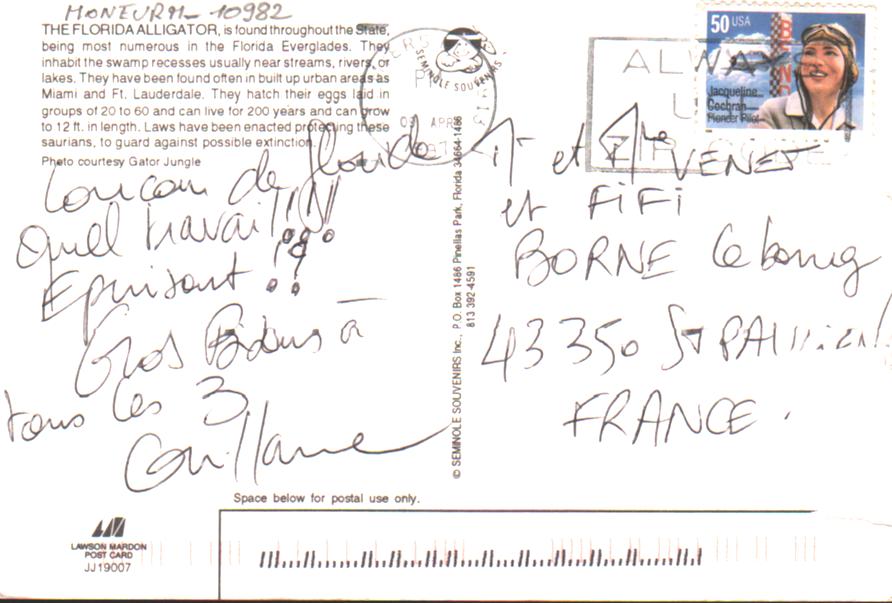 MONEURM-10982
THE FLORIDA ALLIGATOR, is found throughout the State,
being most numerous in the Florida Everglades. They
inhabit the swamp recesses usually near streams, rivers, or
lakes. They have been found often in built up urban areas as
Miami and Ft. Lauderdale. They hatch their eggs laid in
groups of 20 to 60 and can live for 200 years and can grow
to 12 ft. in length. Laws have been enacted protecting these
saurians, to guard against possible extinction.
Photo courtesy Gator Jungle
Coucou de floride
Quel travail!!!
Epuisant !!
Gros Bisous à
tous les 3
Guillaume
SEMINOLE SOUVENIRS
PM
APR
1997
ALWAYS
50 USA
Jacqueline
Cochran
Pioneer Pilot
© SEMINOLE SOUVENIRS Inc., P.O. Box 1486 Pinellas Park, Florida 34664-1486
813 392-4591
Mr et Mme VENET
et FIFI
BORNE le bourg
43350 St PAULIEN
FRANCE.
Space below for postal use only.
LAWSON MARDON
POST CARD
JJ19007